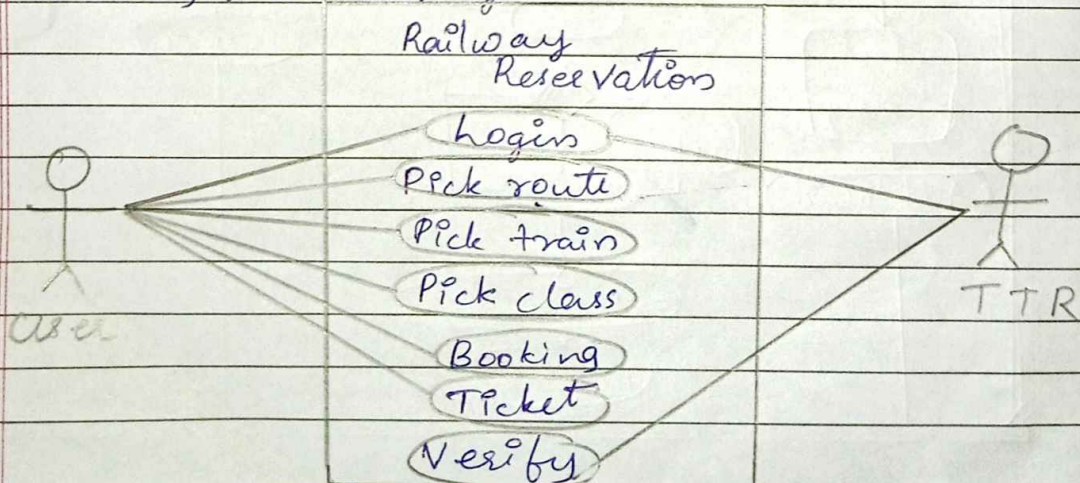 Railway
Reservation
Login
Pick route
Pick train
Pick class
Booking
Ticket
Verify
User
TTR